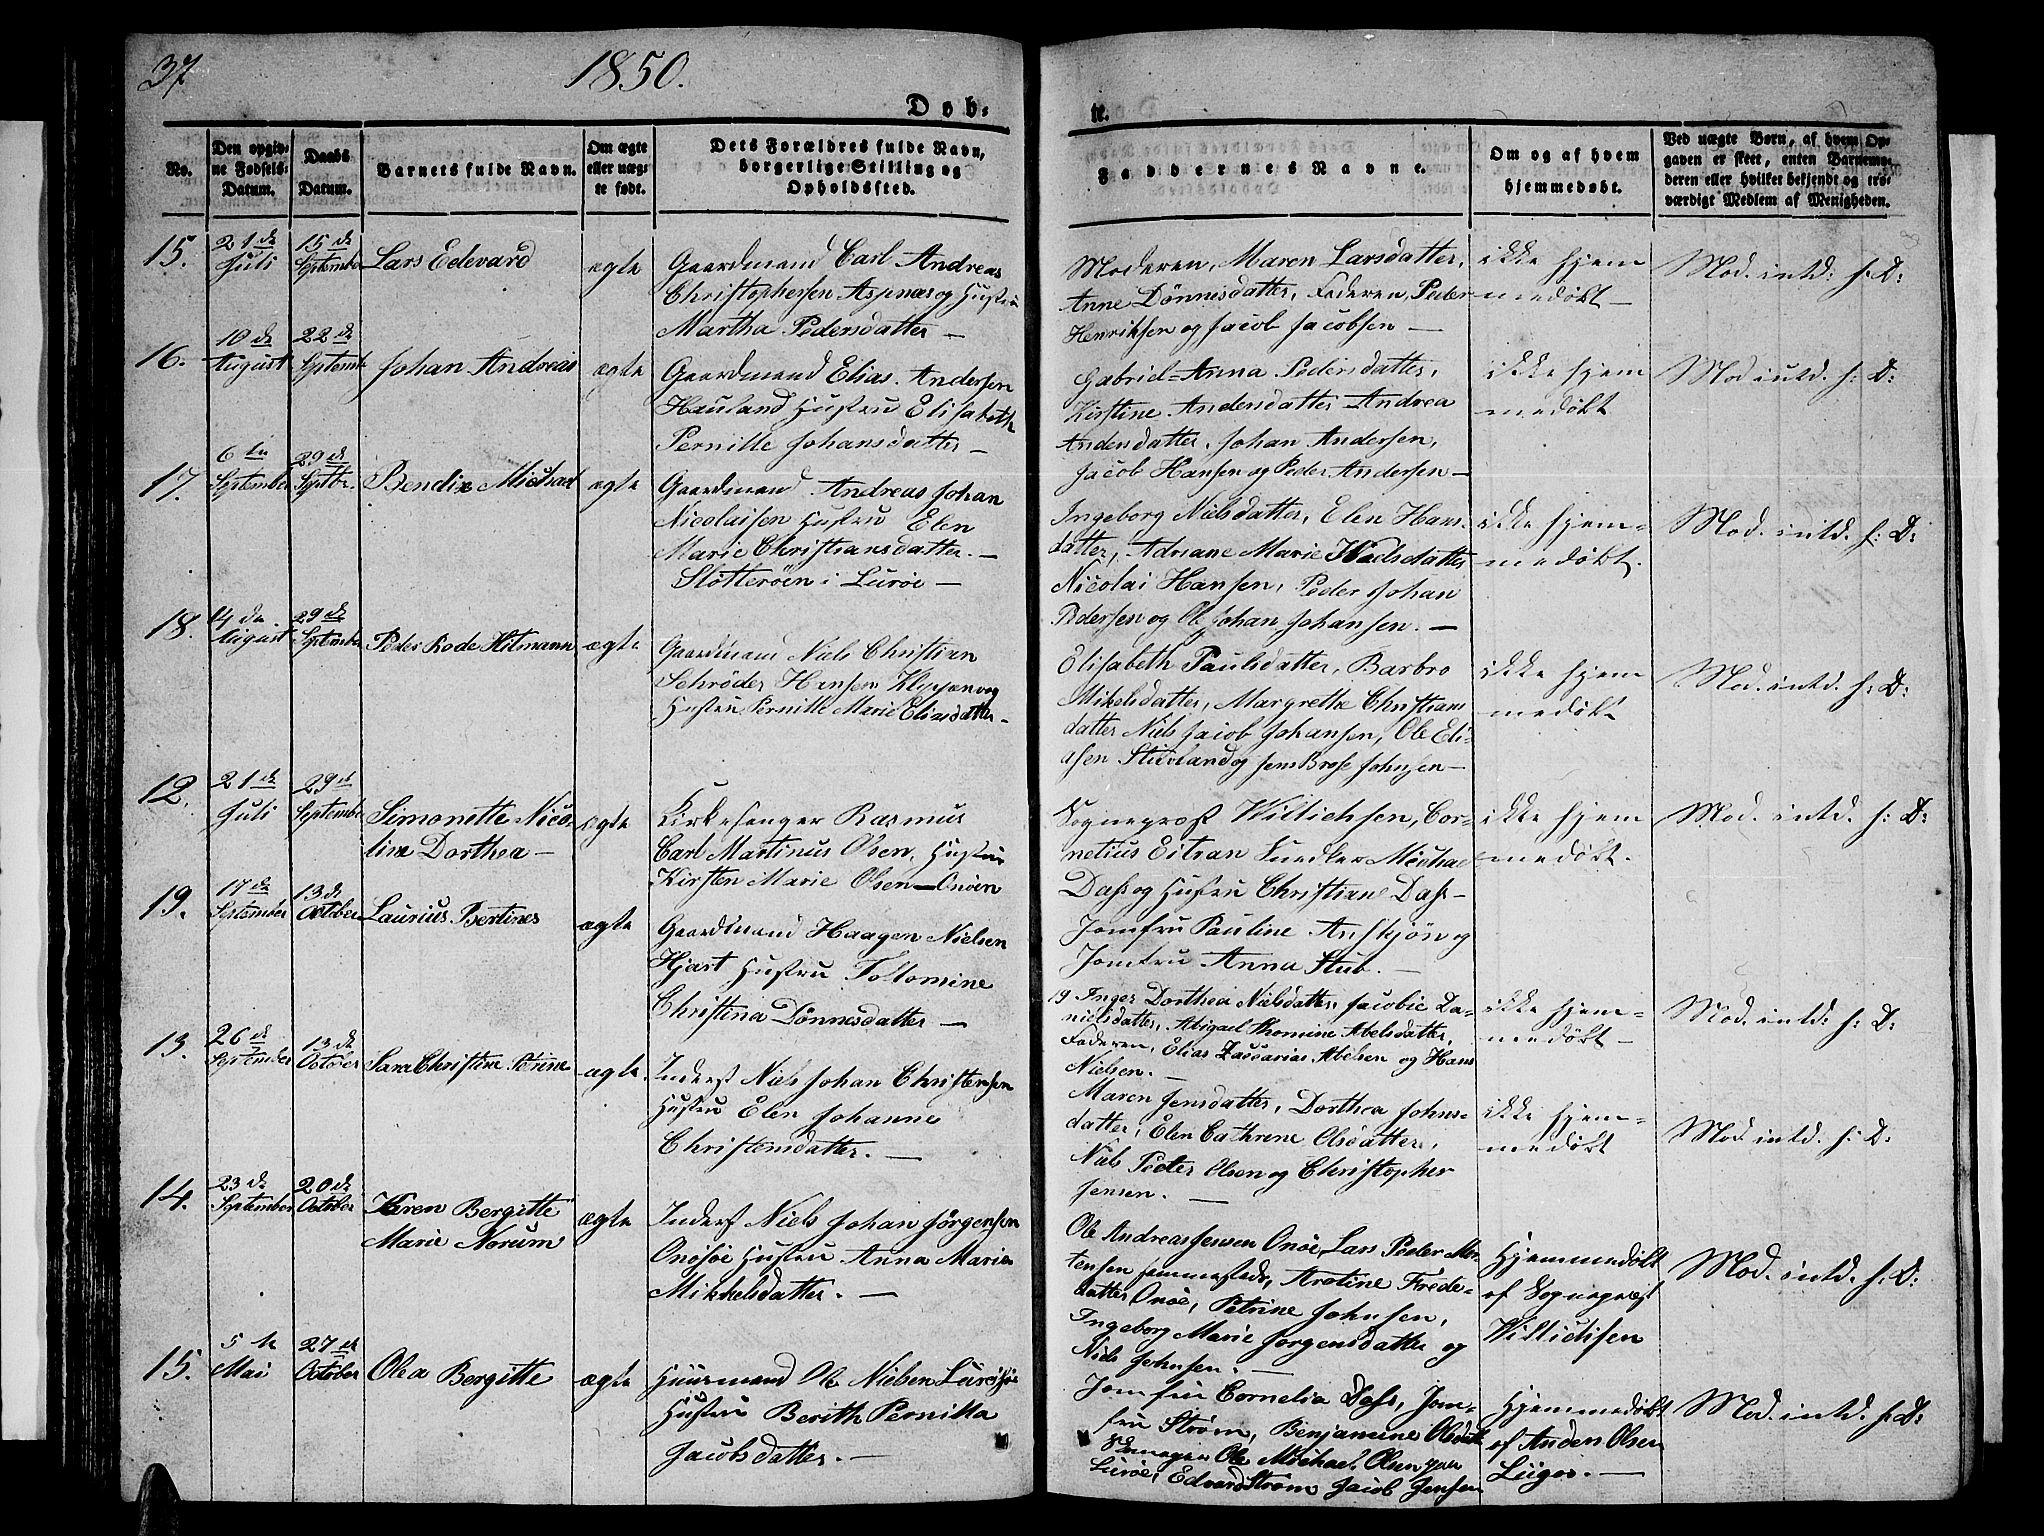 37
1850.
Døb-
te.
No.
Den opgiv-
ne Fødsels-
Datum.
Daabs
Datum.
Barnets fulde Navn.
Om ægte
eller uæg-
te født.
Dets Forældres fulde Navn,
borgerlige Stilling og
Opholdssted.
Faddernes Navne.
Om og af hvem
hjemmedøbt.
Ved uægte Børn, af hvem Op-
gaven er skeet, enten Barnemo-
deren eller hvilket bekjendt og tro-
værdigt Medlem af Menigheden.
15.
21 de
Juli
15 de
September
Lars Edevard
ægte
Gaardmand Carl Andreas
Christophersen Aspnæs og Hustru
Martha Pedersdatter —
Moderen, Maren Larsdatter,
Anne Dønnesdatter, Faderen, Peder
Henriksen og Jacob Jacobsen —
ikke hjem
medøbt —
Mod. intd: f: D:
16.
10 de
August
22 de
Septemb
Johan Andreas
ægte
Gaardmand Elias Andersen
Hauland Hustru Elisabeth
Pernille Johansdatter —
Gabriel-Anna Pedersdatter,
Kirstine Andersdatter Andrea
Andersdatter, Johan Andersen,
Jacob Hansen og Peder Andersen —
ikke hjem
medøbt
Mod intd. f: D:
17.
6 te
September
29 de
Septbr.
Bendix Michael
ægte
Gaardmand Andreas Johan
Nicolaisen Hustru Elen
Marie Christiansdatter. —
Slotterøen i Lurøe —
Ingeborg Nielsdatter, Elen Hans-
datter, Adriane Marie Nielsdatter
Nicolai Hansen, Peder Johan
Pedersen og Ole Johan Johansen. —
ikke hjem-
medøbt.
Mod. intd. f: D:
18.
14 de
August
29 de
September
Peder Rode Hitmann
ægte
Gaardmand Niels Christian
Schrøder Hansen
Hustru Pernille Marie Eliasdatter —
Elisabeth Paulsdatter, Barbro
Mikelsdatter, Margrethe Christians
datter Niels Jacob Johansen, Ole Eli-
asen Stuvland og Jens Brose Johnsen —
ikke hjem
medøbt
Mod. intd. f: D:
12.
21 de
Juli
29 d
September
Simonette Nico-
line Dorthea —
ægte
Kirkesanger Rasmus
Carl Martinus Olsen, Hustru
Kirsten Marie Olsen — Onøen
Sogneprest Wittichsen, Cor-
nelius Michael
Dass og Hustru Christiane Dass —
Jomfru Pauline og
Jomfru Anna Stub. —
ikke hjem
medøbt.
Mod. intd. f: D:
19.
17 de
September
13 de
October
Laurius Bertines
ægte
Gaardmand Haagen Nielsen
Hjart Hustru Tollomine
Christina Dønnesdatter —
19 Inger Dorthea Nielsdatter, Jacobie Da-
nielsdatter, Abigael Thomine Abelsdatter,
Faderen, Elias Zaccarias Abelsen og Hans
Nielsen. —
ikke hjem-
medøbt —
Mod. intd: f: D:
13.
26 de
September
13 de
October
Sara Christine Perine
ægte.
Inderst Niels Johan Christensen
Hustru Elen Johanne
Christensdatter. —
Maren Jensdatter, Dorthea Johns-
datter, Elen Cathrene Olsdatter,
Niels Peder Olsen og Christopher
Jensen. —
ikke hjem-
medøbt
Mod. intd. f: D:
14.
23 de
September
20 de
October
Karen Bergitte
Marie Norum
ægte
Inderst Niels Johan Jørgensen
Onøsøe Hustru Anna Marie
Mikkelsdatter. —
Ole Andreas Jensen Onøe, Lars Peder Mor-
tensen sammesteds, Arotine Frede-
datter Onøe, Petrine Johnsen,
Ingeborg Marie Jørgensdatter og
Niels Johnsen. —
Hjemmedøbt
af Sogneprest
Wittichsen
Mod. intd. f: D:
15.
5 te
Mai
27 de
October
Olea Bergitte
ægte
Huusmand Ole Nielsen
Hustru Berith Pernilla
Jacobsdatter. —
Jomfru Cornelia Dass, Jom-
fru Strøm, Benjamine Olsdatt
Skomager Ole Michael Olsen paa
Lurøe, Edvard Strøm Jacob Jensen
Hjemmedøbt
af Anders Olsen
—
Mod. intd. f: D: